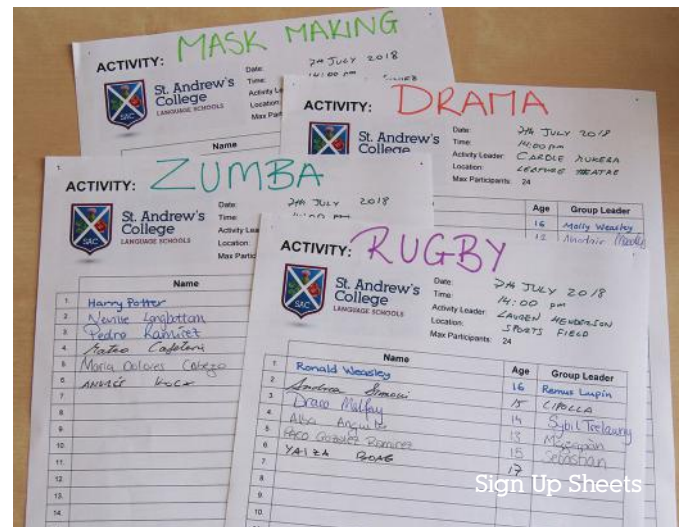 ACTIVITY: MASK MAKING
St. Andrew's
College
LANGUAGE SCHOOLS
SAC
Date: 7th JULY 2018
Time: 14:00 pm
Activity Le
Location:
Max Part
Name
ACTIVITY: DRAMA
St. Andrew's
College
Date: 7th JULY 2018
Time: 14:00 pm
Activity Leader:
Location: LECTURE THEATRE
Max Participants: 24
Age Group Leader
16 Molly Weasley
13
1.
ACTIVITY: ZUMBA
St. Andrew's
College
LANGUAGE SCHOOLS
SAC
Date: 7th JULY 2018
Time:
Activity Lea
Location:
Max Partic
Name
1. Harry Potter
2. Neville Longbottom
3. Pedro Ramirez
4. Mateo Cafetera
5. Maria Dolores Cabeza
6. ANDRÉS
7.
8.
9.
10.
11.
12.
13.
14.
ACTIVITY: RUGBY
St. Andrew's
College
LANGUAGE SCHOOLS
SAC
Date: 7th JULY 2018
Time: 14:00 pm
Activity Leader: LAUREN HENDERSON
Location: SPORTS FIELD
Max Participants: 24
Name Age Group Leader
1. Ronald Weasley 16 Remus Lupin
2. Andrea Simoni 15 CIPOLLA
3. Draco Malfoy 14 Sybil Trelawny
4. Alba 13 Mazapán
5. PACO Ramirez 15 Sebastian
6. YAIZA 17
7.
8.
9.
10.
Sign Up Sheets